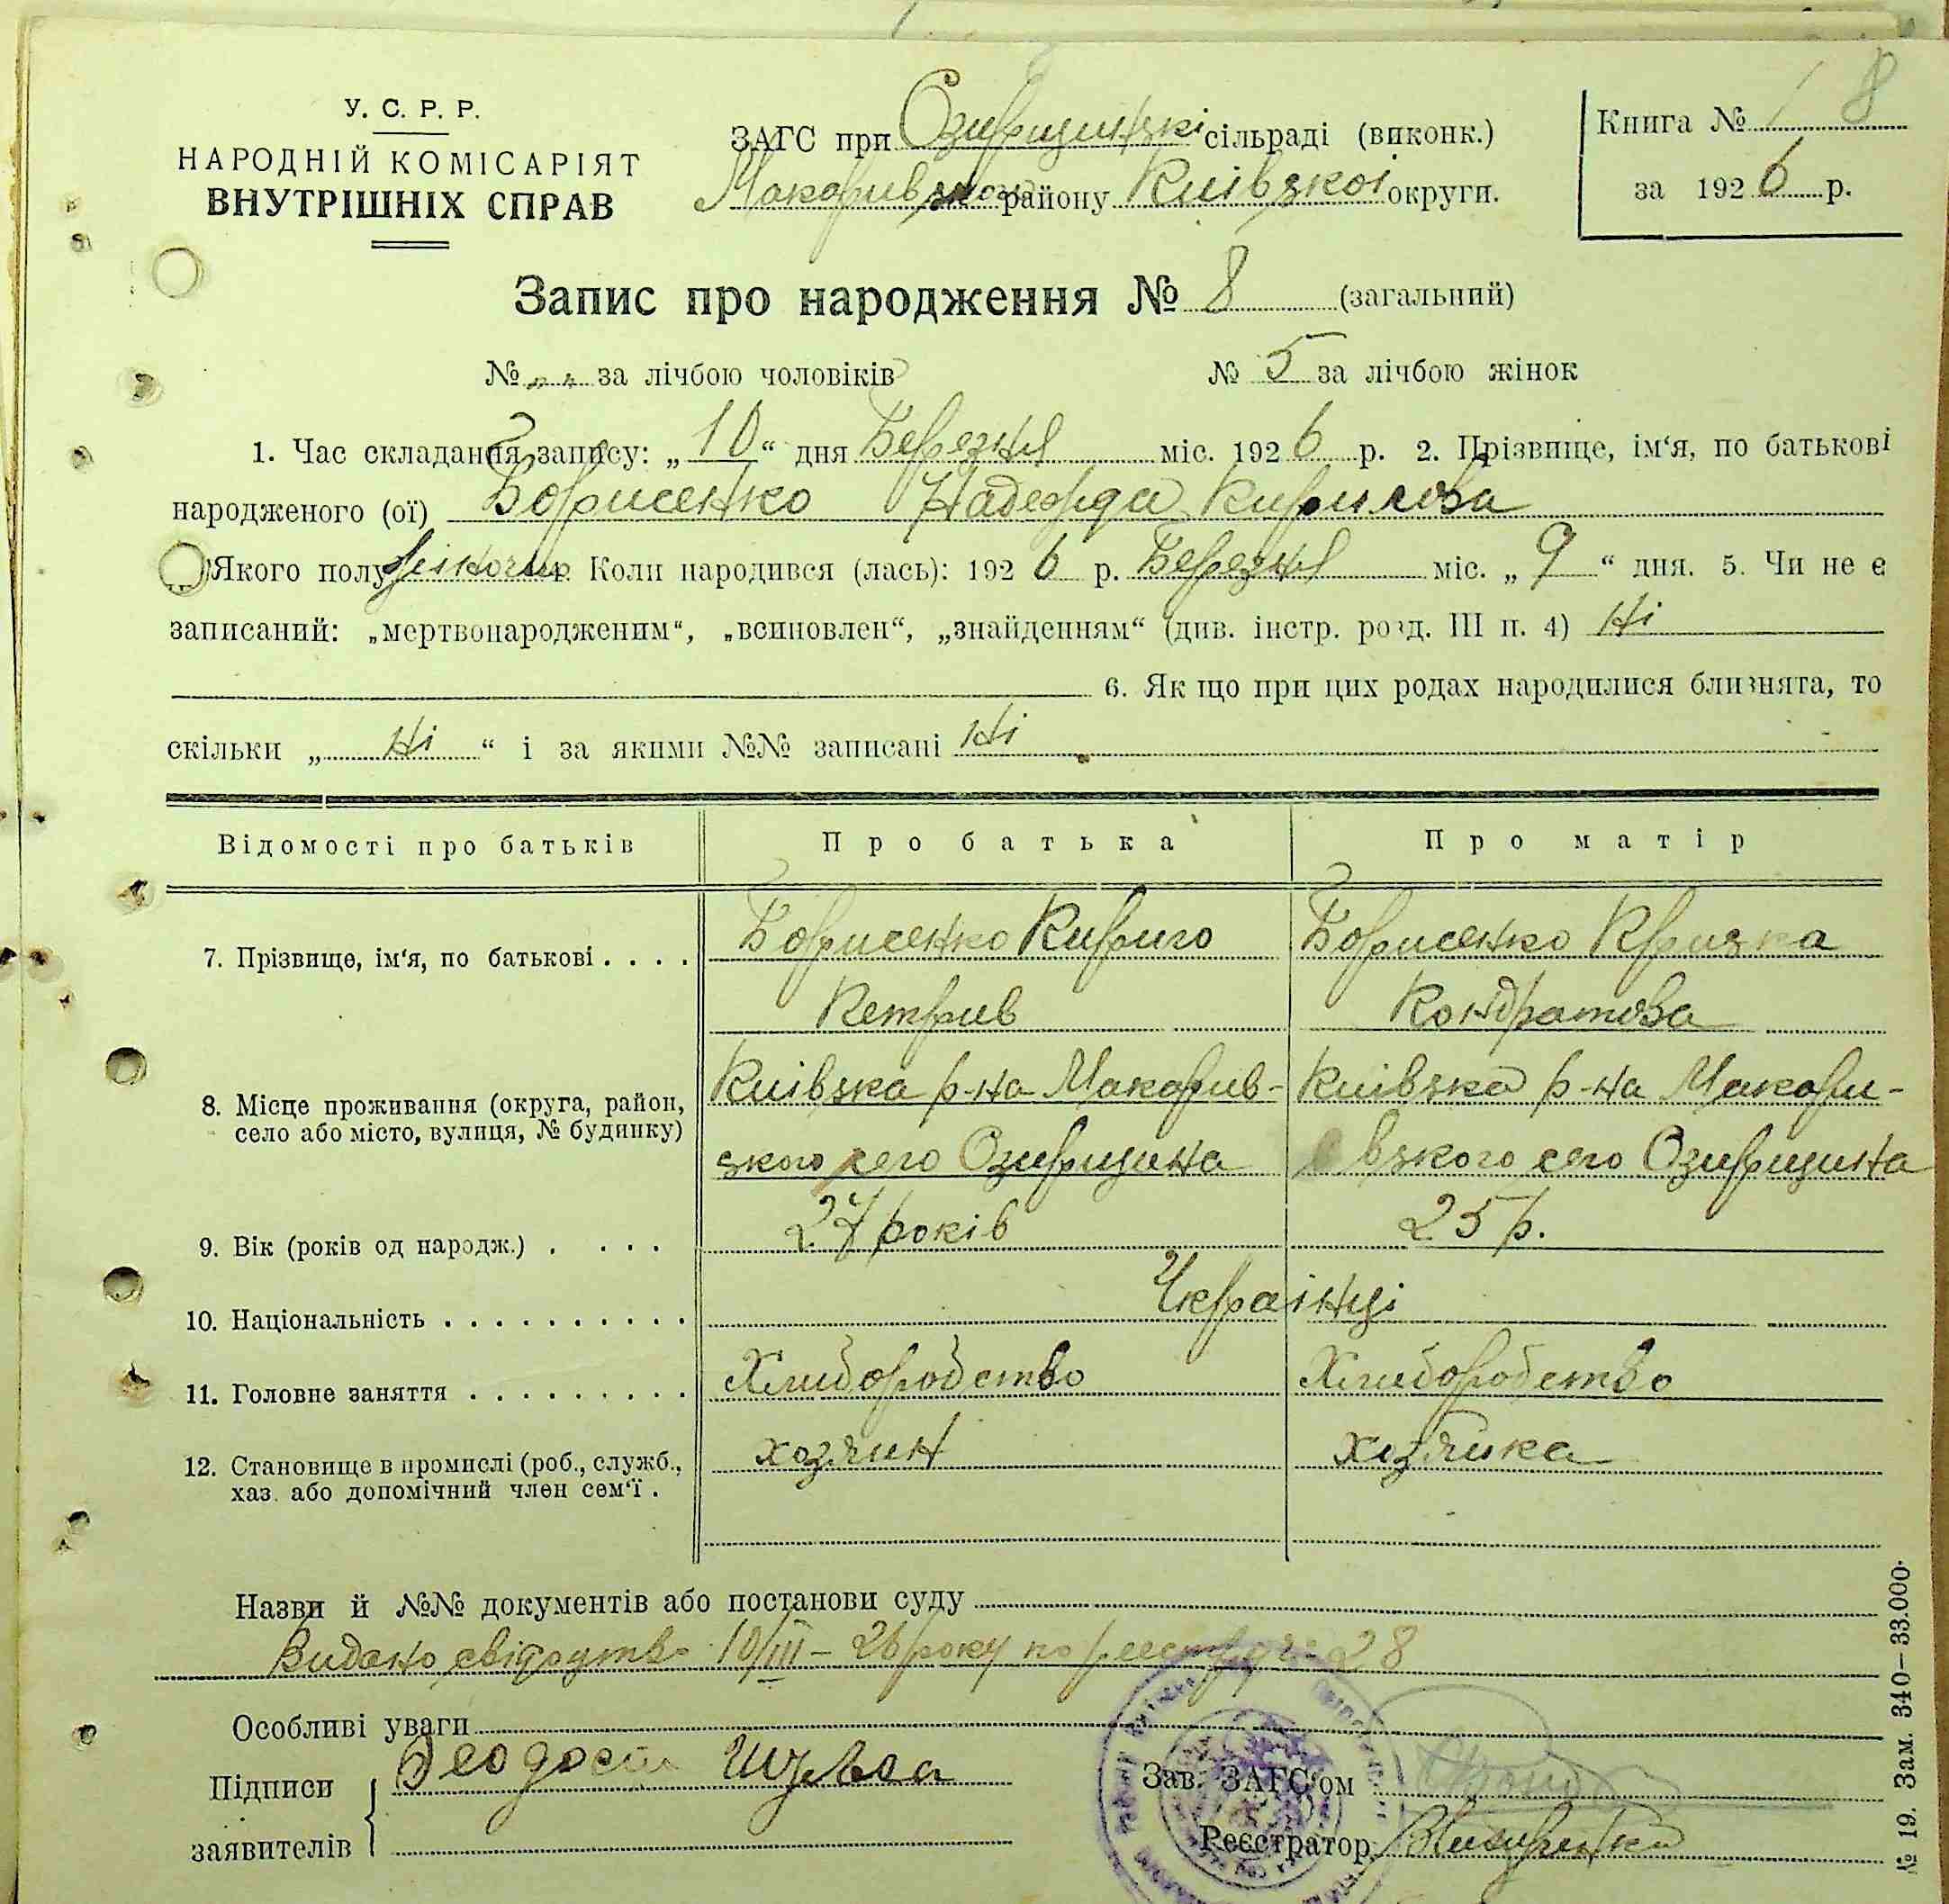 У. С. Р. Р.
НАРОДНІЙ КОМІСАРІЯТ
ВНУТРІШНІХ СПРАВ
ЗАГС при Озирщинзкі сільраді (виконк.)
Макаривзкого району Киівзкоі округи.
Книга № 1 8
за 1926 р.
Запис про народження № 8 (загальний)
№ „ „ за лічбою чоловіків № 5 за лічбою жінок
1. Час складання запису: „10“ дня Березня міс. 1926 р. 2. Прізвище, ім‘я, по батькові
народженого (ої) Борисенко Надежда Кирилова
Якого полу жіночир Коли народився (лась): 1926 р. Березня міс. „9“ дня. 5. Чи не є
записаний: „мертвонародженим“, „всиновлен“, „знайденням“ (див. інстр. розд. III п. 4) Ні
6. Якщо при цих родах народилися близнята, то
скільки „Ні“ і за якими №№ записані Ні
Відомості про батьків Про батька Про матір
7. Прізвище, ім‘я, по батькові . . . . Борисенко Кирило Борисенко
Петрив Кондратова
8. Місце проживання (округа, район, Киівзка р-на Макарив- Киівзка р-на Макари-
село або місто, вулиця, № будинку) зкого село Озирщина взкого село Озирщина
9. Вік (років од народж.) . . . . 27 років 25 р.
10. Національність . . . . . . . . . . Українці
11. Головне заняття . . . . . . . . . Хлиборобство Хлиборобство
12. Становище в промислі (роб., служб., хозяин хозяйка
хаз. або допомічний член сем‘ї .
Назви й №№ документів або постанови суду
Видано свідоцтво 10/III – 26 року по реестру 28
Особливі уваги
Підписи Зав. ЗАГС‘ом
заявителів Реєстратор
№ 19. Зам. 340–33.000.